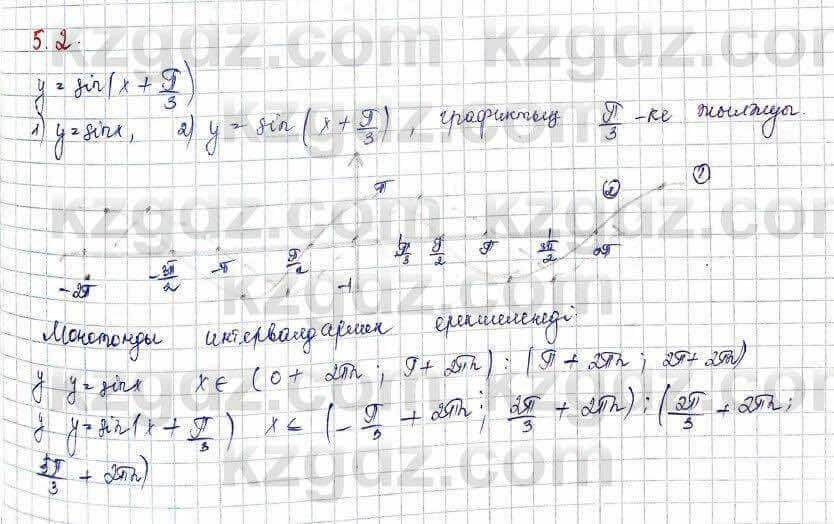 5.2.
y = sin(x + π/3)
1) y = sinx, 2) y = sin(x + π/3), графиктың π/3 -ке жылжуы.
π ② ①
-2π -3π/2 -π π/2 -1 π/3 π/2 π 3π/2 2π
Монотонды интервалдармен ерекшеленеді:
y y = sinx x∈ (0 + 2πn; π + 2πn) : (π + 2πn; 2π + 2πn)
y y = sin(x + π/3) x∈ (-π/3 + 2πn; 2π/3 + 2πn) : (2π/3 + 2πn;
5π/3 + 2πn)
kzgdz.com